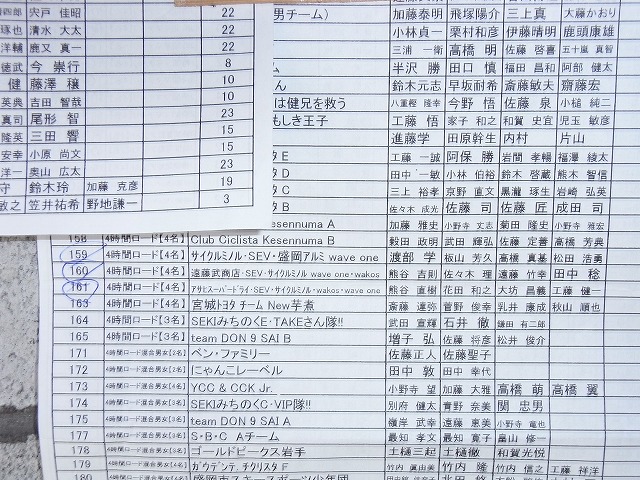 宍戸 佳昭 22
清水 大太 22
鹿又 真一 22
今 崇行 8
藤澤 穣 10
吉田 智哉 10
尾形 智 23
三田 響 15
小原 尚文 15
奥山 広太 23
守 鈴木玲 加藤 克彦 19
敏之 笠井祐希 野地謙一 3
男チーム） 加藤泰明 飛塚陽介 三上真 大藤かおり
小林貞一 栗村和彦 伊藤晴明 鹿頭康雄
三浦 一衛 高橋 明 佐藤 啓喜 五十嵐 真智
半沢 勝 田口 慎 福田 昌和 阿部 健太
鈴木元志 早坂耐希 斎藤敏夫 齋藤宏
は健兄を救う 八重樫 隆幸 今野 悟 佐藤 泉 小槌 純二
もしき王子 工藤 悟 家子 和之 和賀 史宜 児玉 敏彦
進藤学 田原幹生 内村 片山
タ E 工藤 一誠 阿保 勝 岩間 孝暢 福澤 綾太
タ D 田中 一敏 小林 伯裕 鈴木 啓蔵 熊木 智信
タ C 三上 裕孝 京野 直文 黒瀧 琢生 岩崎 弘英
タ B 佐々木 成光 佐藤 司 佐藤 匠 成田 司
Kesennuma A 加藤 雅史 小野寺 志doc 菊田 隆史 小野寺 孝雅
158 4時間ロード【4名】 Club Ciclista Kesennuma B 毅田 政明 武田 輝弘 佐藤 定善 高橋 芳典
159 4時間ロード【4名】 サイクルミノル・SEV・盛岡アルミ wave one 渡部 学 板山 芳久 高橋 真基 松田 浩勇
160 4時間ロード【4名】 遠藤武商店・SEV・サイクルミノル wave one・wakos 熊谷 吉則 佐々木 理 遠藤 竹幸 田中 稔
161 4時間ロード【4名】 アサヒスーパードライ・SEV・サイクルミノル・wave one・wakos 熊谷 直樹 花田 和之 大坊 昌義 工藤 健一
163 4時間ロード【4名】 宮城トヨタ チーム New芋煮 斎藤 達弥 菅野 俊幸 乳井 康成 秋山 順也
164 4時間ロード【3名】 SEKIみちのくE・TAKEさん隊!! 武田 宣輝 石井 徹 鎌田 有二郎
165 4時間ロード【3名】 team DON 9 SAI B 増子 弘 佐藤 将彦 松井 俊介
171 4時間ロード混合男女【2名】 ペン・ファミリー 佐藤正人 佐藤聖子
172 4時間ロード混合男女【2名】 にゃんこレーベル 田中 敦 田中 幸代
173 4時間ロード混合男女【4名】 YCC & CCK Jr. 小野寺 望 加藤 大雅 高橋 萌 高橋 翼
174 4時間ロード混合男女【3名】 SEKIみちのくC・VIP隊!! 別府 健太 青野 奈美 関 忠男
175 4時間ロード混合男女【3名】 team DON 9 SAI A 嶺岸 武幸 遠藤 恵美 小野寺 竜也
177 4時間ロード混合男女【3名】 S・B・C Aチーム 最知 孝文 最知 寛子 畠山 修一
178 4時間ロード混合男女【3名】 ゴールドピークース岩手 土樋三起 土樋徹 和賀光悦
179 4時間ロード混合男女【4名】 ガウデンテ・チクリスタ F 竹内 眞由美 竹内 隆 竹内 信之 工藤 祥洋
180